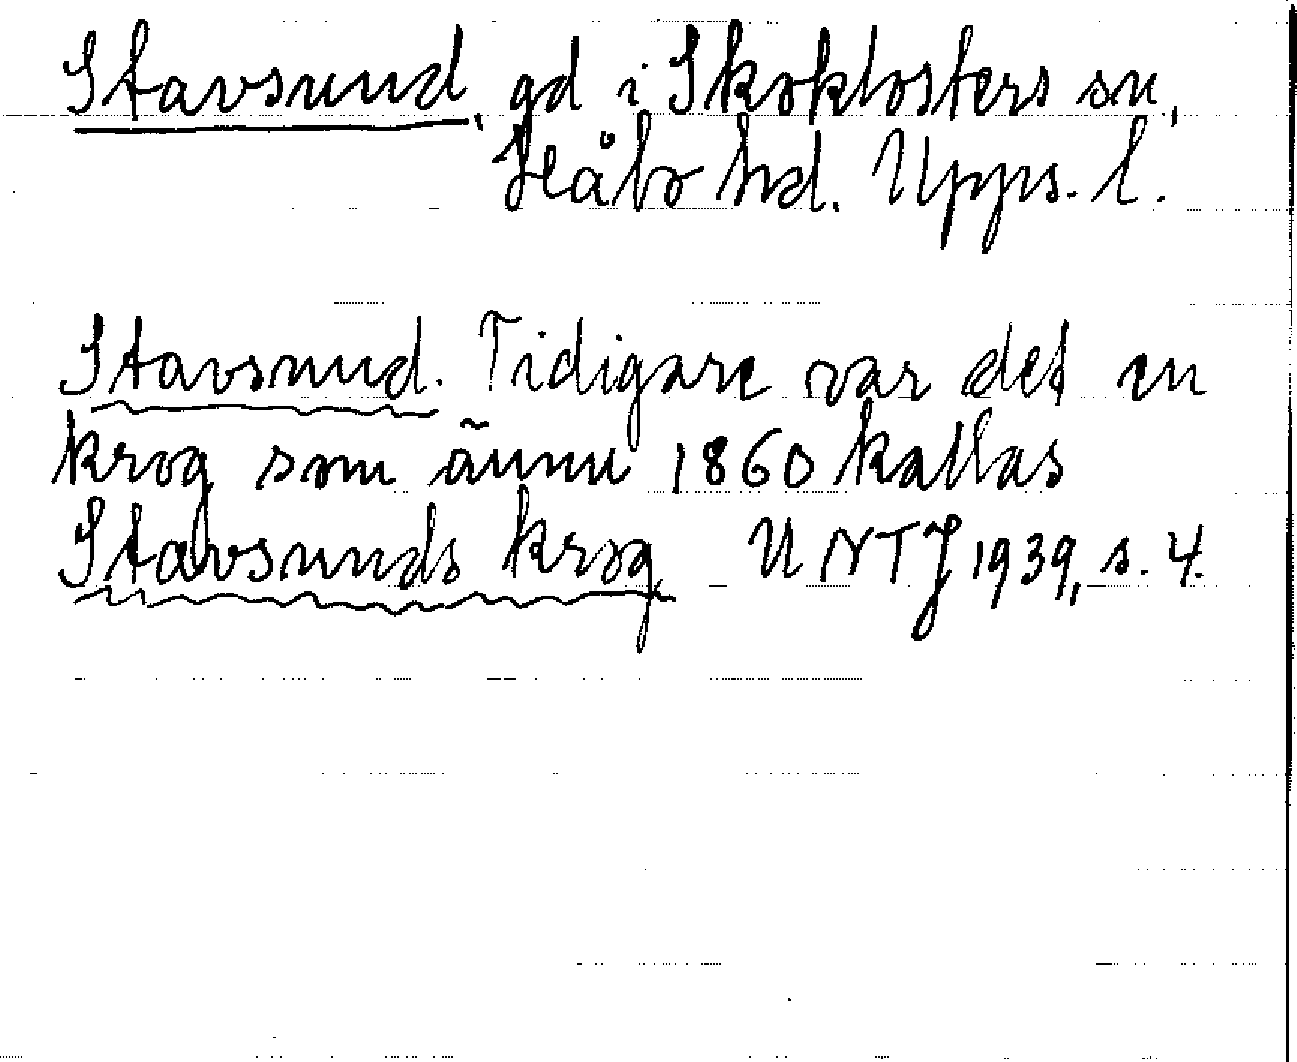 Stavsund, gd i Skoklosters sn,
Håbo hd. Upps. l.
Stavsund. Tidigare var det en
krog som ännu 1860 kallas
Stavsunds krog. UNTJ 1939, s. 4.